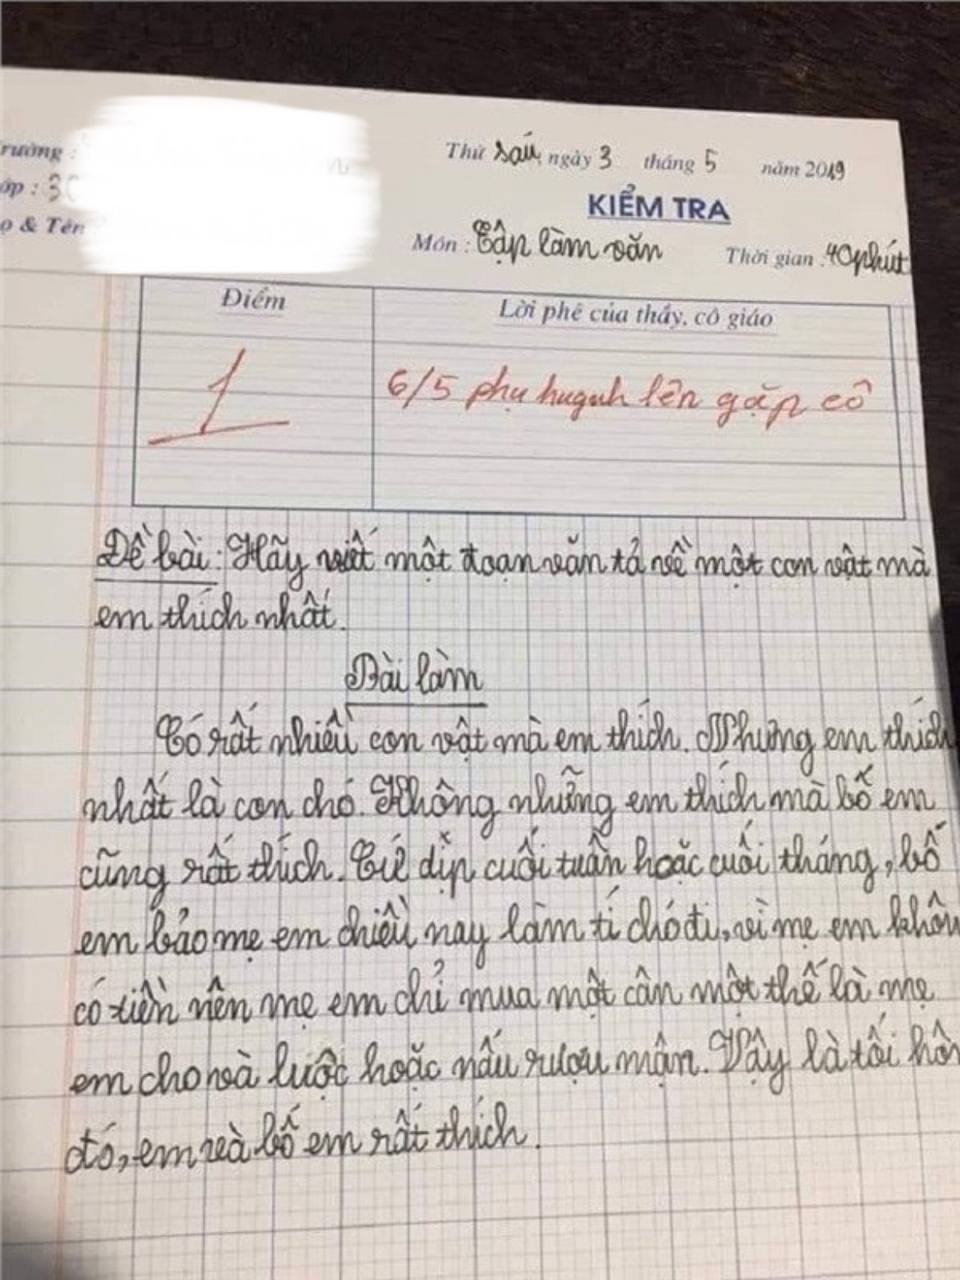 Trường :
Thứ sáu, ngày 3 tháng 5 năm 2019
Lớp : 3C
KIỂM TRA
Họ & Tên
Môn : Tập làm văn Thời gian : 40 phút
Điểm
Lời phê của thầy, cô giáo
1
6/5 phụ huynh lên gặp cô
Đề bài : Hãy viết một đoạn văn tả về một con vật mà
em thích nhất.
Bài làm
Có rất nhiều con vật mà em thích. Nhưng em thích
nhất là con chó. Không những em thích mà bố em
cũng rất thích. Cứ dịp cuối tuần hoặc cuối tháng, bố
em bảo mẹ em chiều nay làm tí chó đi, vì mẹ em khôn
có tiền nên mẹ em chỉ mua một cân một thế là mẹ
em cho và luộc hoặc nấu rượu mận. Vậy là tối hôm
đó, em và bố em rất thích.